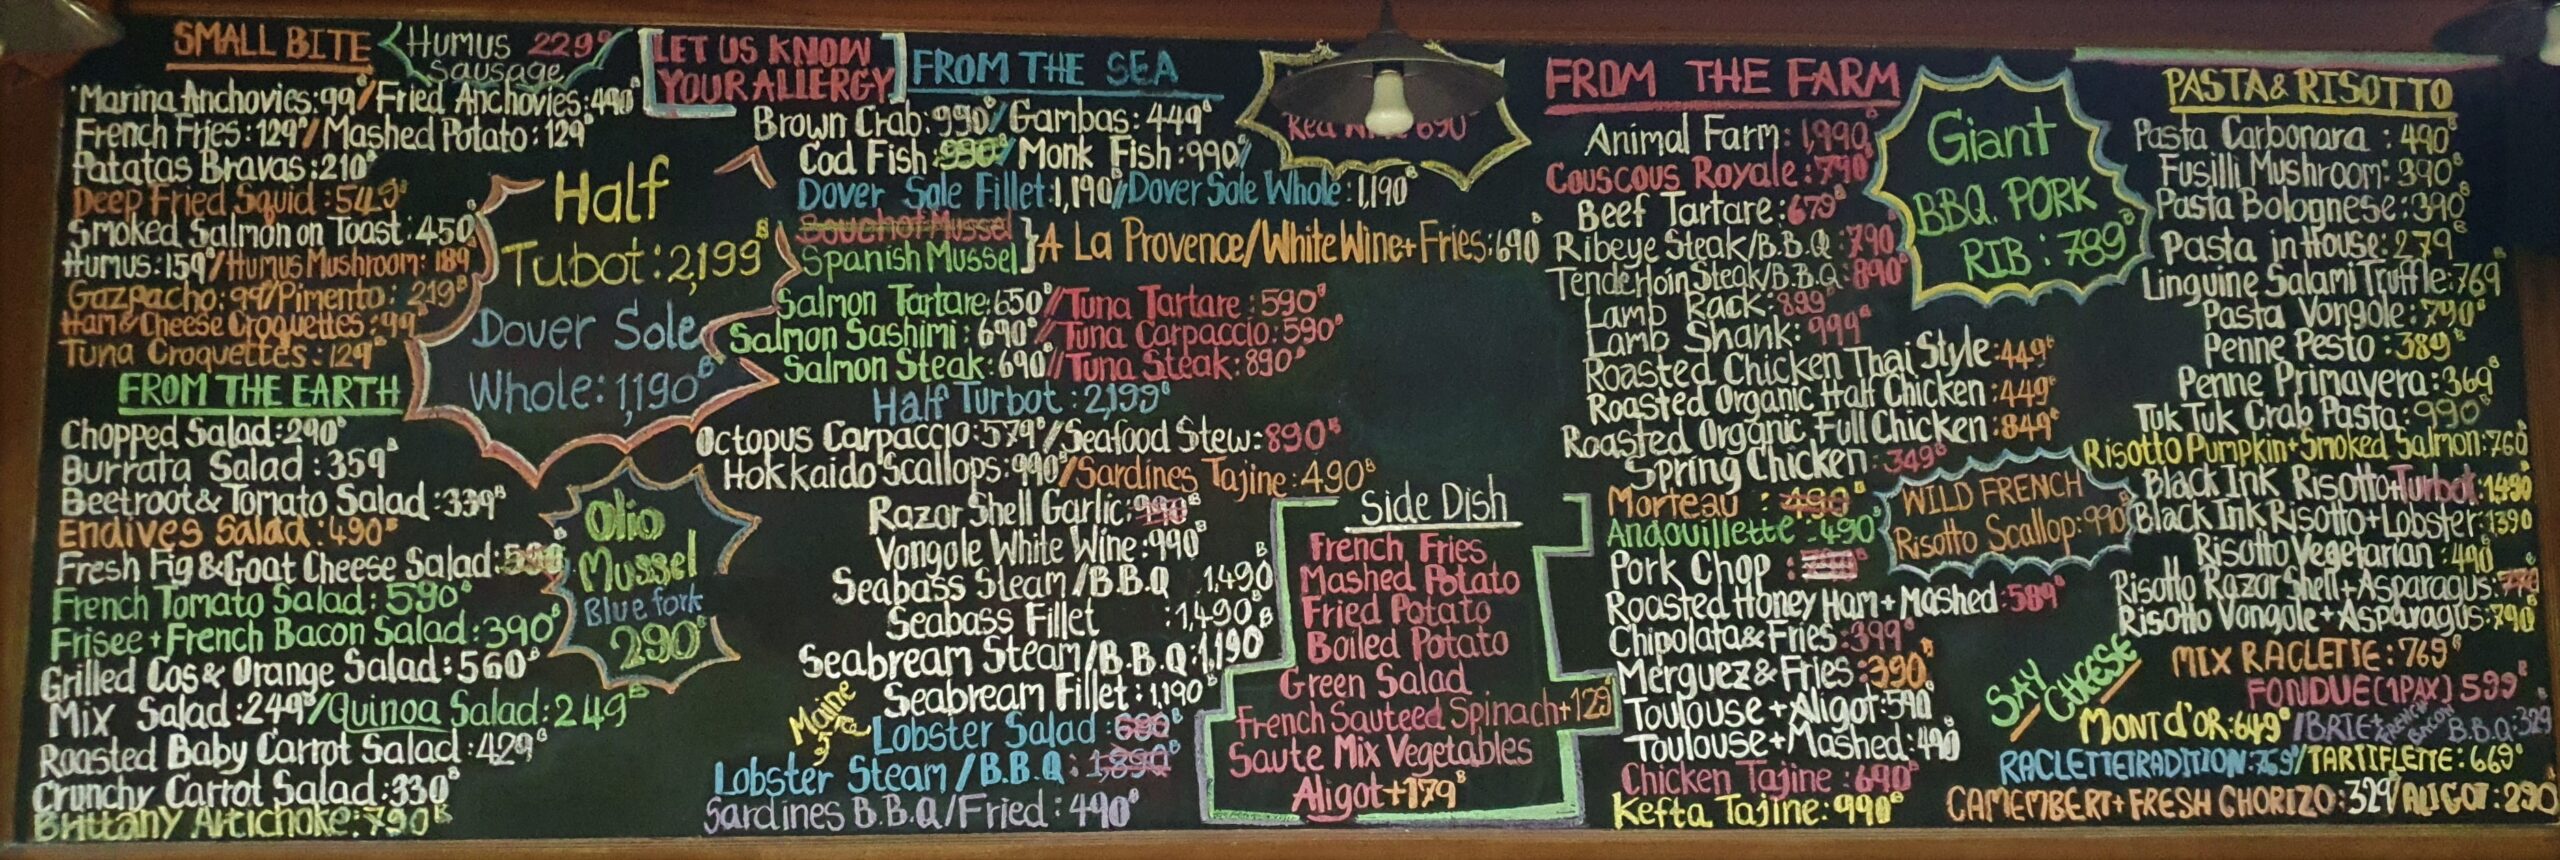 SMALL BITE
Humus 229฿
Sausage
Marina Anchovies:99฿/Fried Anchovies:490฿
French Fries:129฿/Mashed Potato:129฿
Patatas Bravas:210฿
Deep Fried Squid:549฿
Smoked Salmon on Toast:450฿
Humus:159฿/Humus Mushroom:189
Gazpacho:99/Pimento:219฿
Ham&Cheese Croquettes:99฿
Tuna Croquettes:129฿
FROM THE EARTH
Chopped Salad:290฿
Burrata Salad:359฿
Beetroot&Tomato Salad:339฿
Endives Salad:490฿
Fresh Fig&Goat Cheese Salad:
French Tomato Salad:590฿
Frisee+French Bacon Salad:390฿
Grilled Cos&Orange Salad:560฿
Mix Salad:249฿/Quinoa Salad:249฿
Roasted Baby Carrot Salad:429฿
Crunchy Carrot Salad:330฿
Brittany Artichoke:790฿
Half
Tubot:2,199฿
Dover Sole
Whole:1,190฿
Olio
Mussel
Blue fork
290฿
LET US KNOW
YOUR ALLERGY
FROM THE SEA
Brown Crab:990฿/Gambas:449฿
Cod Fish:990฿/Monk Fish:990฿/
Dover Sole Fillet:1,190฿/Dover Sole Whole:1,190฿
Bouchot Mussel
Spanish Mussel } A La Provence/White Wine+Fries:690฿
Salmon Tartare:650฿/Tuna Tartare:590฿
Salmon Sashimi:690฿/Tuna Carpaccio:590฿
Salmon Steak:690฿/Tuna Steak:890฿
Half Turbot:2,199฿
Octopus Carpaccio:579฿/Seafood Stew:890฿
Hokkaido Scallops:990฿/Sardines Tajine:490฿
Razor Shell Garlic:990฿
Vongole White Wine:990฿
Seabass Steam/B.B.Q 1,490฿
Seabass Fillet :1,490฿
Seabream Steam/B.B.Q:1,190฿
Seabream Fillet:1,190฿
Maine
Lobster Salad:680฿
Lobster Steam/B.B.Q:1,890฿
Sardines B.B.Q/Fried:490฿
690
Side Dish
French Fries
Mashed Potato
Fried Potato
Boiled Potato
Green Salad
French Sauteed Spinach+129฿
Saute Mix Vegetables
Aligot+179฿
FROM THE FARM
Animal Farm:1,990฿
Couscous Royale:790฿
Beef Tartare:679฿
Ribeye Steak/B.B.Q:790฿
Tenderloin Steak/B.B.Q:890฿
Lamb Rack:899฿
Lamb Shank:999฿
Roasted Chicken Thai Style:449฿
Roasted Organic Half Chicken:449฿
Roasted Organic Full Chicken:849฿
Spring Chicken:349฿
Morteau :490฿
Andouillette:490฿
Pork Chop :
Roasted Honey Ham+Mashed:589฿
Chipolata&Fries:399฿
Merguez&Fries:390฿
Toulouse+Aligot:590฿
Toulouse+Mashed:490฿
Chicken Tajine:690฿
Kefta Tajine:990฿
Giant
BBQ. PORK
RIB:789฿
WILD FRENCH
Risotto Scallop:990฿
PASTA&RISOTTO
Pasta Carbonara:490฿
Fusilli Mushroom:390฿
Pasta Bolognese:390฿
Pasta in House:279฿
Linguine Salami Truffle:769฿
Pasta Vongole:790฿
Penne Pesto:389฿
Penne Primavera:369฿
Tuk Tuk Crab Pasta:990฿
Risotto Pumpkin+Smoked Salmon:760฿
Black Ink Risotto+Turbot:1490
Black Ink Risotto+Lobster:1390
Risotto Vegetarian:490฿
Risotto Razor Shell+Asparagus:
Risotto Vongole+Asparagus:790฿
SAY CHEESE
MIX RACLETTE:769฿
FONDUE(1PAX) 599฿
MONT d'OR:649฿/BRIE+FRENCH BACON B.B.Q:329
RACLETTETRADITION:769/TARTIFLETTE:669฿
CAMEMBERT+FRESH CHORIZO:329/ALIGOT:290